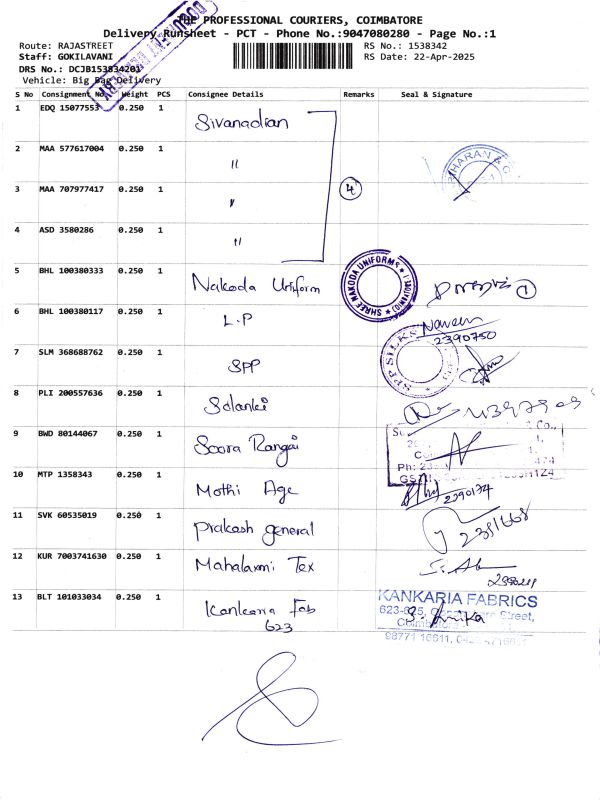 THE PROFESSIONAL COURIERS, COIMBATORE
Delivery Runsheet - PCT - Phone No.:9047080280 - Page No.:1
Route: RAJASTREET
RS No.: 1538342
Staff: GOKILAVANI
RS Date: 22-Apr-2025
DRS No.: DCJB153834201
Vehicle: Big Bag Delivery
S No Consignment No. Weight PCS Consignee Details Remarks Seal & Signature
1 EDQ 15077553 0.250 1 Sivanadian
2 MAA 577617004 0.250 1 "
3 MAA 707977417 0.250 1 " 4
4 ASD 3580286 0.250 1 "
5 BHL 100380333 0.250 1 Nakoda Uniform SHREE NAKODA UNIFORMS 1
6 BHL 100380117 0.250 1 L.P Naveen
2390750
7 SLM 368688762 0.250 1 SPP SPP SILKS
8 PLI 200557636 0.250 1 Solanki
9 BWD 80144067 0.250 1 Soora Rangai
Ph:
10 MTP 1358343 0.250 1 Mothi Age 2390174
11 SVK 60535019 0.250 1 Prakash general 2381668
12 KUR 7003741630 0.250 1 Mahalaxmi Tex
13 BLT 101033034 0.250 1 Kankaria Fab
623
KANKARIA FABRICS
Street,
98771 16611,